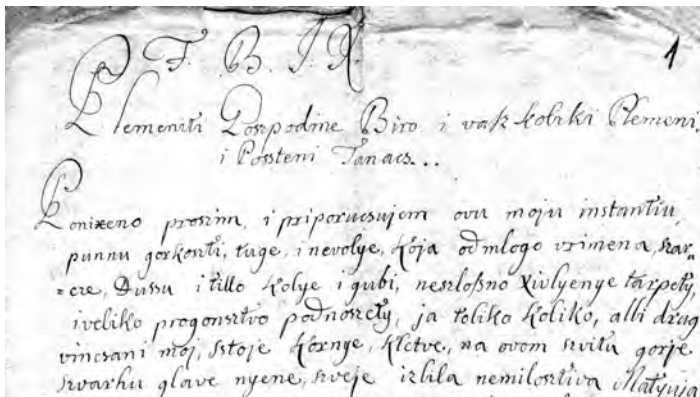 F. B. I. X.
1
Plemeniti Goszpodine Biro i vass kolziki Plemeni,
i Possteni Tanacs...
Ponixeno proszim, i priporucsujem ovu moju instantiu,
punnu gorkoszti, tuge, i nevolye, koja od mlogo vrimena, szar=
=cze, Dussu i tillo kolye i gubi, neszlosno xivlyenye tarpety,
i veliko progonsztvo podnoszety, ja toliko koliko, alli drug
vincsani moj, sstoje kernye, kletve, na ovom szvitu gorje
szvarhu glave nyene, szveje izlila nemilosztiva Matyuja